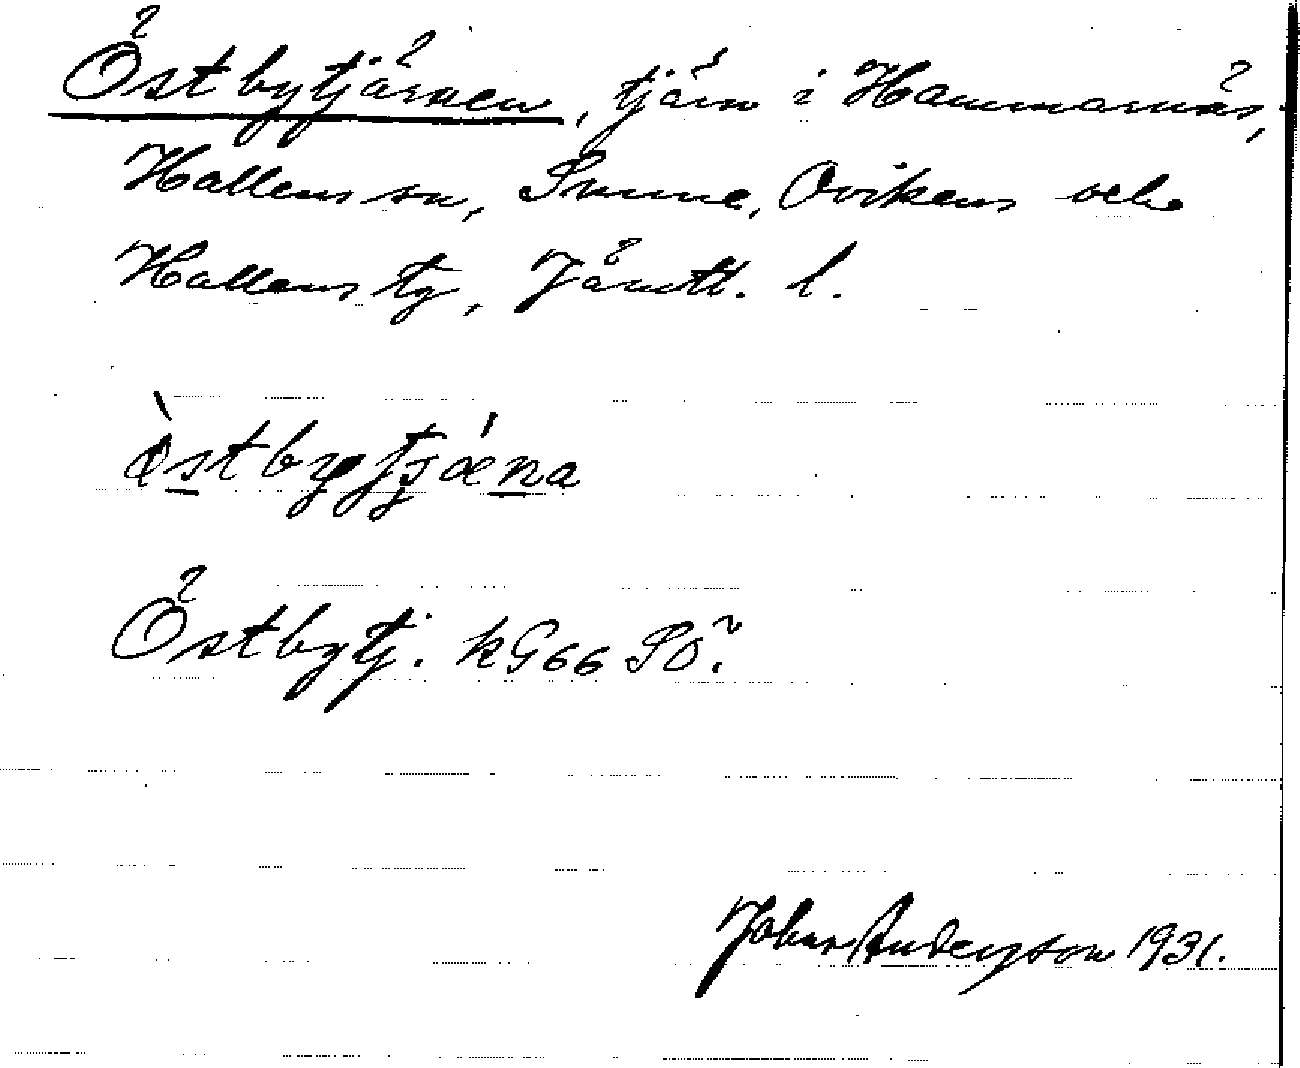 Östbytjärnen, tjärn i Hammarnäs,
Hallens sn, Sunne, Ovikens och
Hallens tg, Jämtl. l.
òstbytjǽna
Östbytj. kG66 SO.
Johan Anderson 1931.